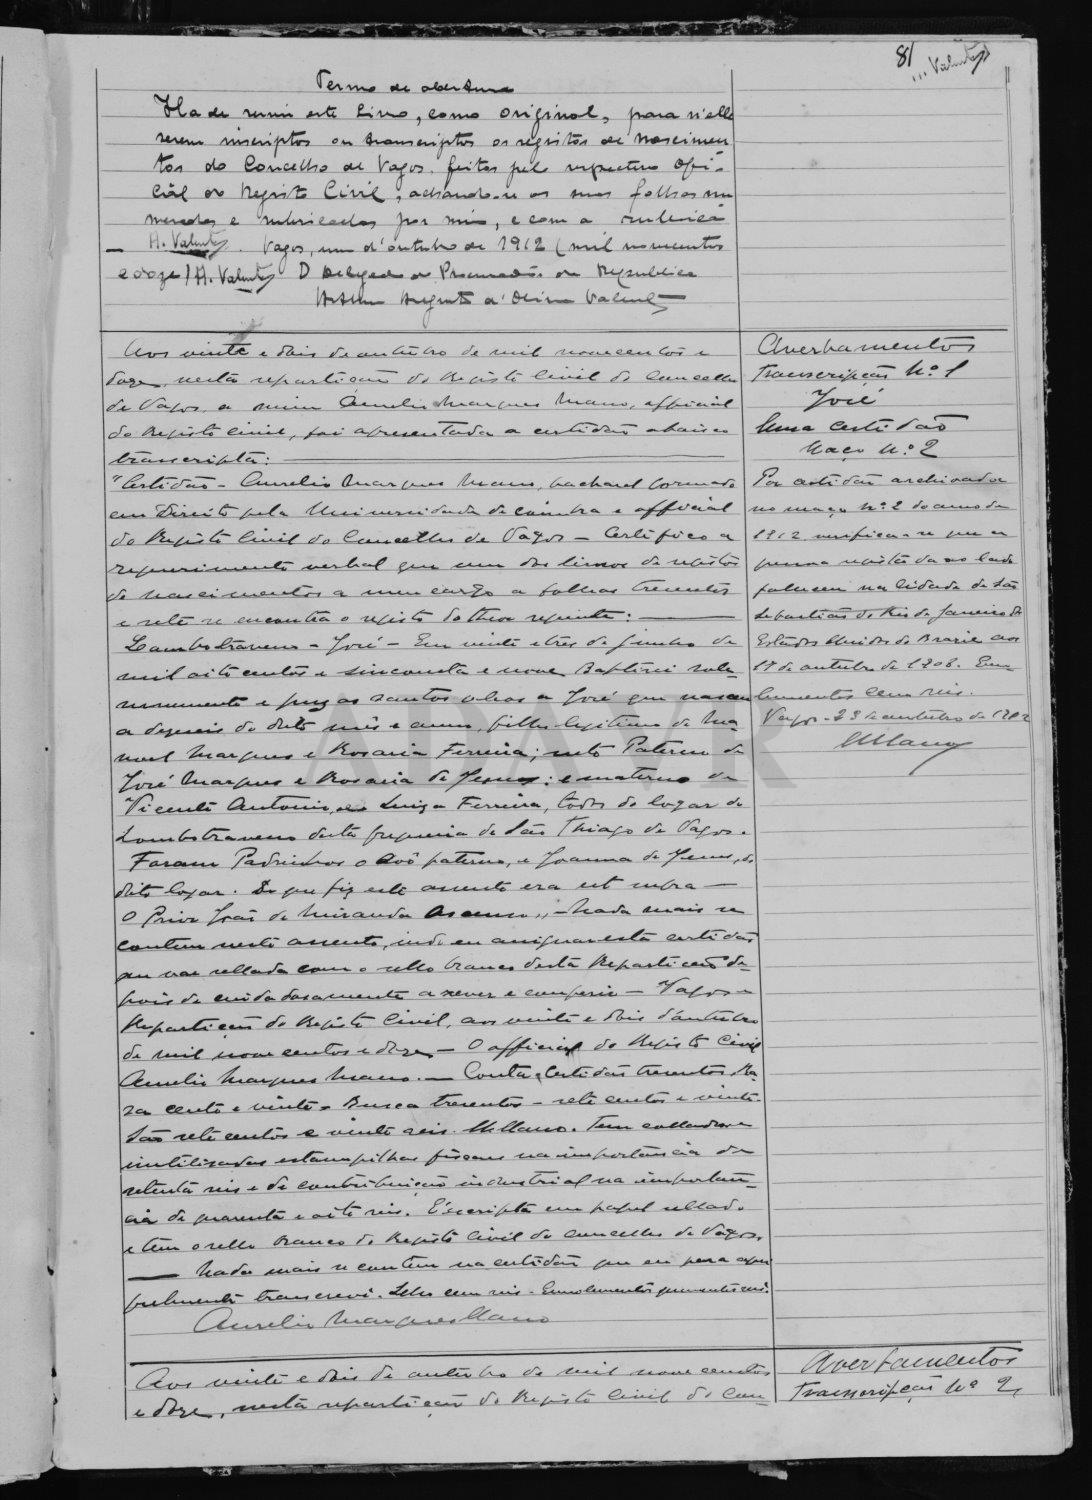 81
Valente
Termo de abertura
Ha de servir este Livro, como original, para n'elle
serem inscriptos ou transcriptos os registos de nascimen
tos do Concelho de Vagos, feitos pelo respectivo Offi-
cial do Registo Civil, achando-se as suas folhas nu
meradas e rubricadas por mim, e com a rubrica
A. Valente. Vagos, um d'outubro de 1912 (mil novecentos
e doze) A. Valente O Delegado do Procurador da Republica
Augusto d'Oliveira Valente
Aos vinte e dois de outubro de mil novecentos e
doze, nesta repartição do Registo Civil do Concelho
de Vagos, a mim Aurelio Marques Mano, official
do Registo Civil, foi apresentada a certidão abaixo
transcripta:
"Certidão - Aurelio Marques Mano, bacharel formado
em Direito pela Universidade de Coimbra e official
do Registo Civil do Concelho de Vagos - Certifico a
requerimento verbal que um dos livros de registos
de nascimentos a meu cargo a folhas trezentos
e sete se encontra o registo do theor seguinte:
Lombotraveno - José - Em vinte e tres de Junho de
mil oito centos e sincoenta e nove Baptizei sole-
mnemente e puz os santos oleos a José que nasceu
a dezeseis do dito mês e anno, filho legitimo de Ma
noel Marques e Rosaria Ferreira; neto Paterno de
José Marques e Rosaria de Jesus; e materno de
Vicente Antonio, e Luiza Ferreira, todos do logar de
Lombotraveno desta freguesia de São Thiago de Vagos.
Foram Padrinhos o avô paterno, e Joanna de Jesus, do
dito logar. De que fiz este assento era ut supra -
O Prior João de Miranda Ascenso" - Nada mais se
contem neste assento, indo eu assignar esta certidão
que vae sellada com o sello branco desta Repartição de-
pois de cuidadosamente a rever e conferir - Vagos e
Repartição do Registo Civil, aos vinte e dois d'outubro
de mil nove centos e doze - O official do Registo Civil
Aurelio Marques Mano. - Conta, Certidão trezentos, Ra-
za cento e vinte - Busca trezentos - sete centos e vinte.
São sete centos e vinte reis. MMano. Tem colladas e
inutilisadas estampilhas fiscaes na importancia de
setenta reis e de contribuição industrial na importan-
cia de quarenta e oito reis. É escripta em papel sellado
e tem o sello branco do Registo Civil do Concelho de Vagos.
Nada mais se contem na certidão que eu para aqui
fielmente transcrevi. Sello cem reis. Emolumentos quinhentos reis.
Aurelio Marques Mano
Averbamentos
Transcripção Nº 1
José
Uma certidão
Maço Nº 2
Por certidão archivada
no maço nº 2 do anno de
1912 verifica-se que a
pessoa registada ao lado
faleceu na cidade de São
Sebastião do Rio de Janeiro dos
Estados Unidos do Brazil aos
17 de outubro de 1908. Emo
lumentos cem reis.
Vagos - 23 de outubro de 1912
MMano
Aos vinte e dois de outubro de mil nove centos
e doze, nesta repartição do Registo Civil do Con-
Averbamentos
Transcripção Nº 2